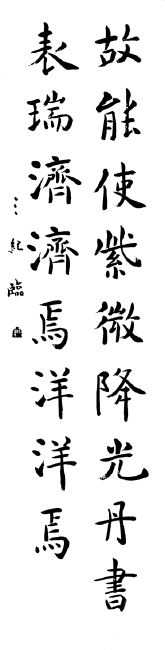 故能使紫微降光丹書
表瑞濟濟焉洋洋焉
三紀臨